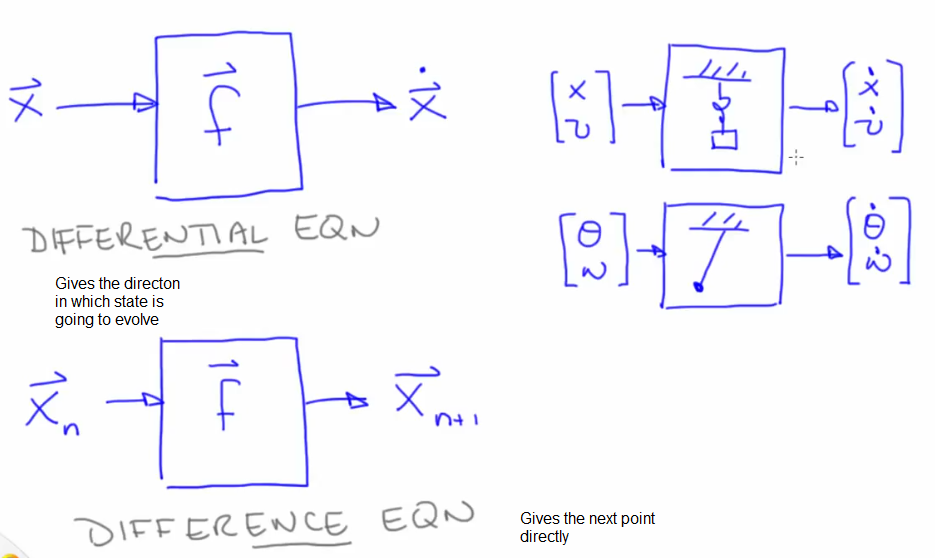 x⃗ f⃗ ẋ⃗
DIFFERENTIAL EQN
Gives the directon
in which state is
going to evolve
x⃗ₙ f⃗ x⃗ₙ₊₁
DIFFERENCE EQN
Gives the next point
directly
[x v] [ẋ v̇]
[θ ω] [θ̇ ω̇]